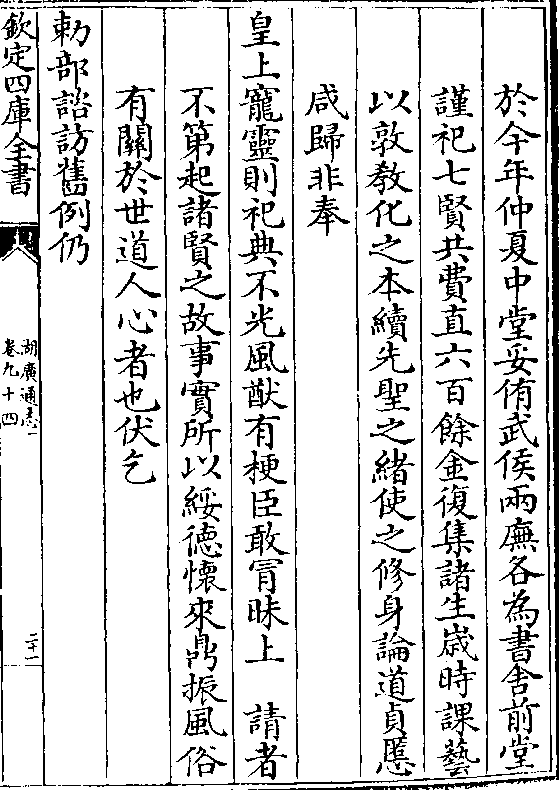 於今年仲夏中堂妥侑武侯兩廡各為書舍前堂
謹祀七賢共費直六百餘金復集諸生歳時課藝
以敦教化之本續先聖之緒使之修身論道貞慝
咸歸非奉
皇上寵靈則祀典不光風猷有梗臣敢冐昧上　請者
不第起諸賢之故事實所以綏徳懷來鼎振風俗
有關於世道人心者也伏乞
勅部諮訪舊例仍
欽定四庫全書
湖廣通志
卷九十四
二十一